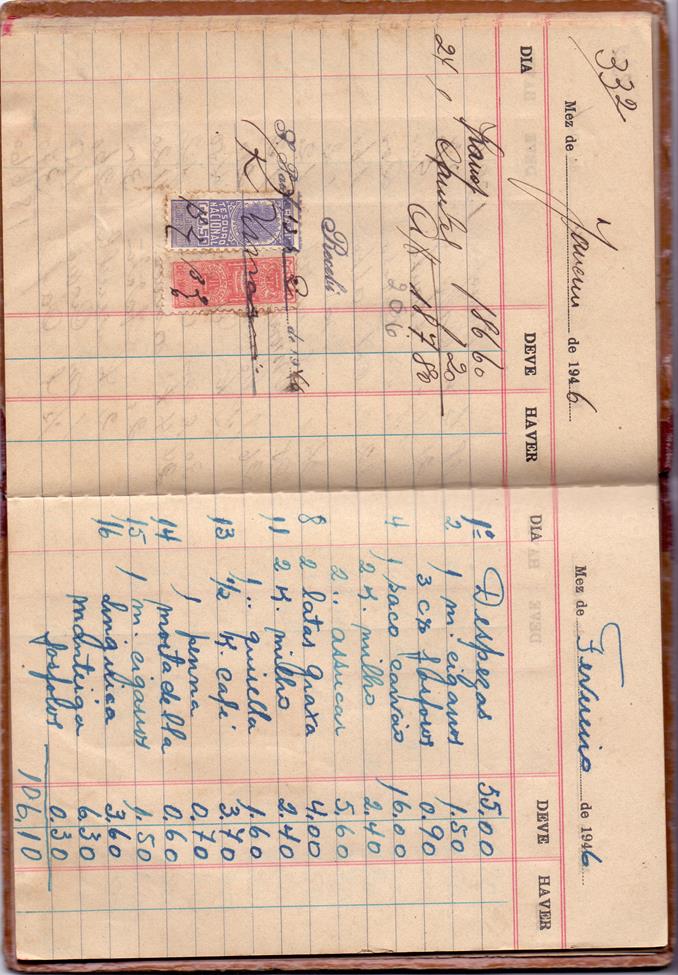 332
Mez de Janeiro de 1946
DIA DEVE HAVER
Transp. 186,60
24 1 1,20
Cr$ 187,80
206
Recebi
S. Paulo 13 2 de 1946
TESOURO NACIONAL
Mez de Fevereiro de 1946
DIA DEVE HAVER
1º Despezas 55.00
2 1 m. cigarros 1.50
3 cx fosforos 0.90
4 1 saco carvão 16.00
2 K. milho 2.40
2 ,, assucar 5.60
8 2 latas graxa 4.00
11 2 K. milho 2.40
1 ,, quirella 1.60
13 1/2 K. café 3.70
1 penna 0.70
14 mortadella 0.60
15 1 m. cigarros 1.50
16 Linguiça 3.60
Manteiga 6.30
fosforos 0.30
106,10